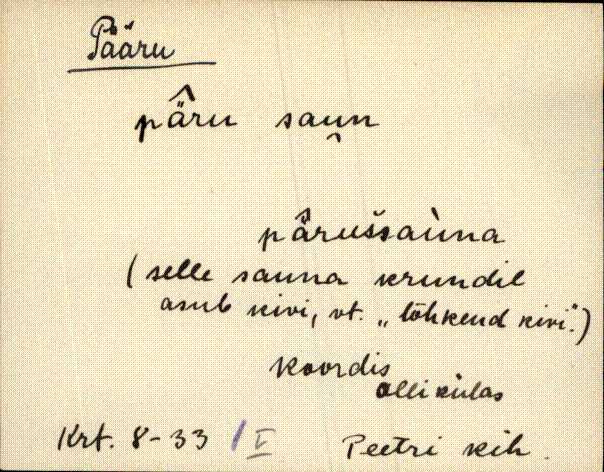 Pääru
pä̂ru sau̯n
pä̂rušsaùna
(selle sauna krundil
asub kivi, vt. „tõhkend kivi".)
Koordis
Olli külas
Krt. 8-33 / I
Peetri kih.